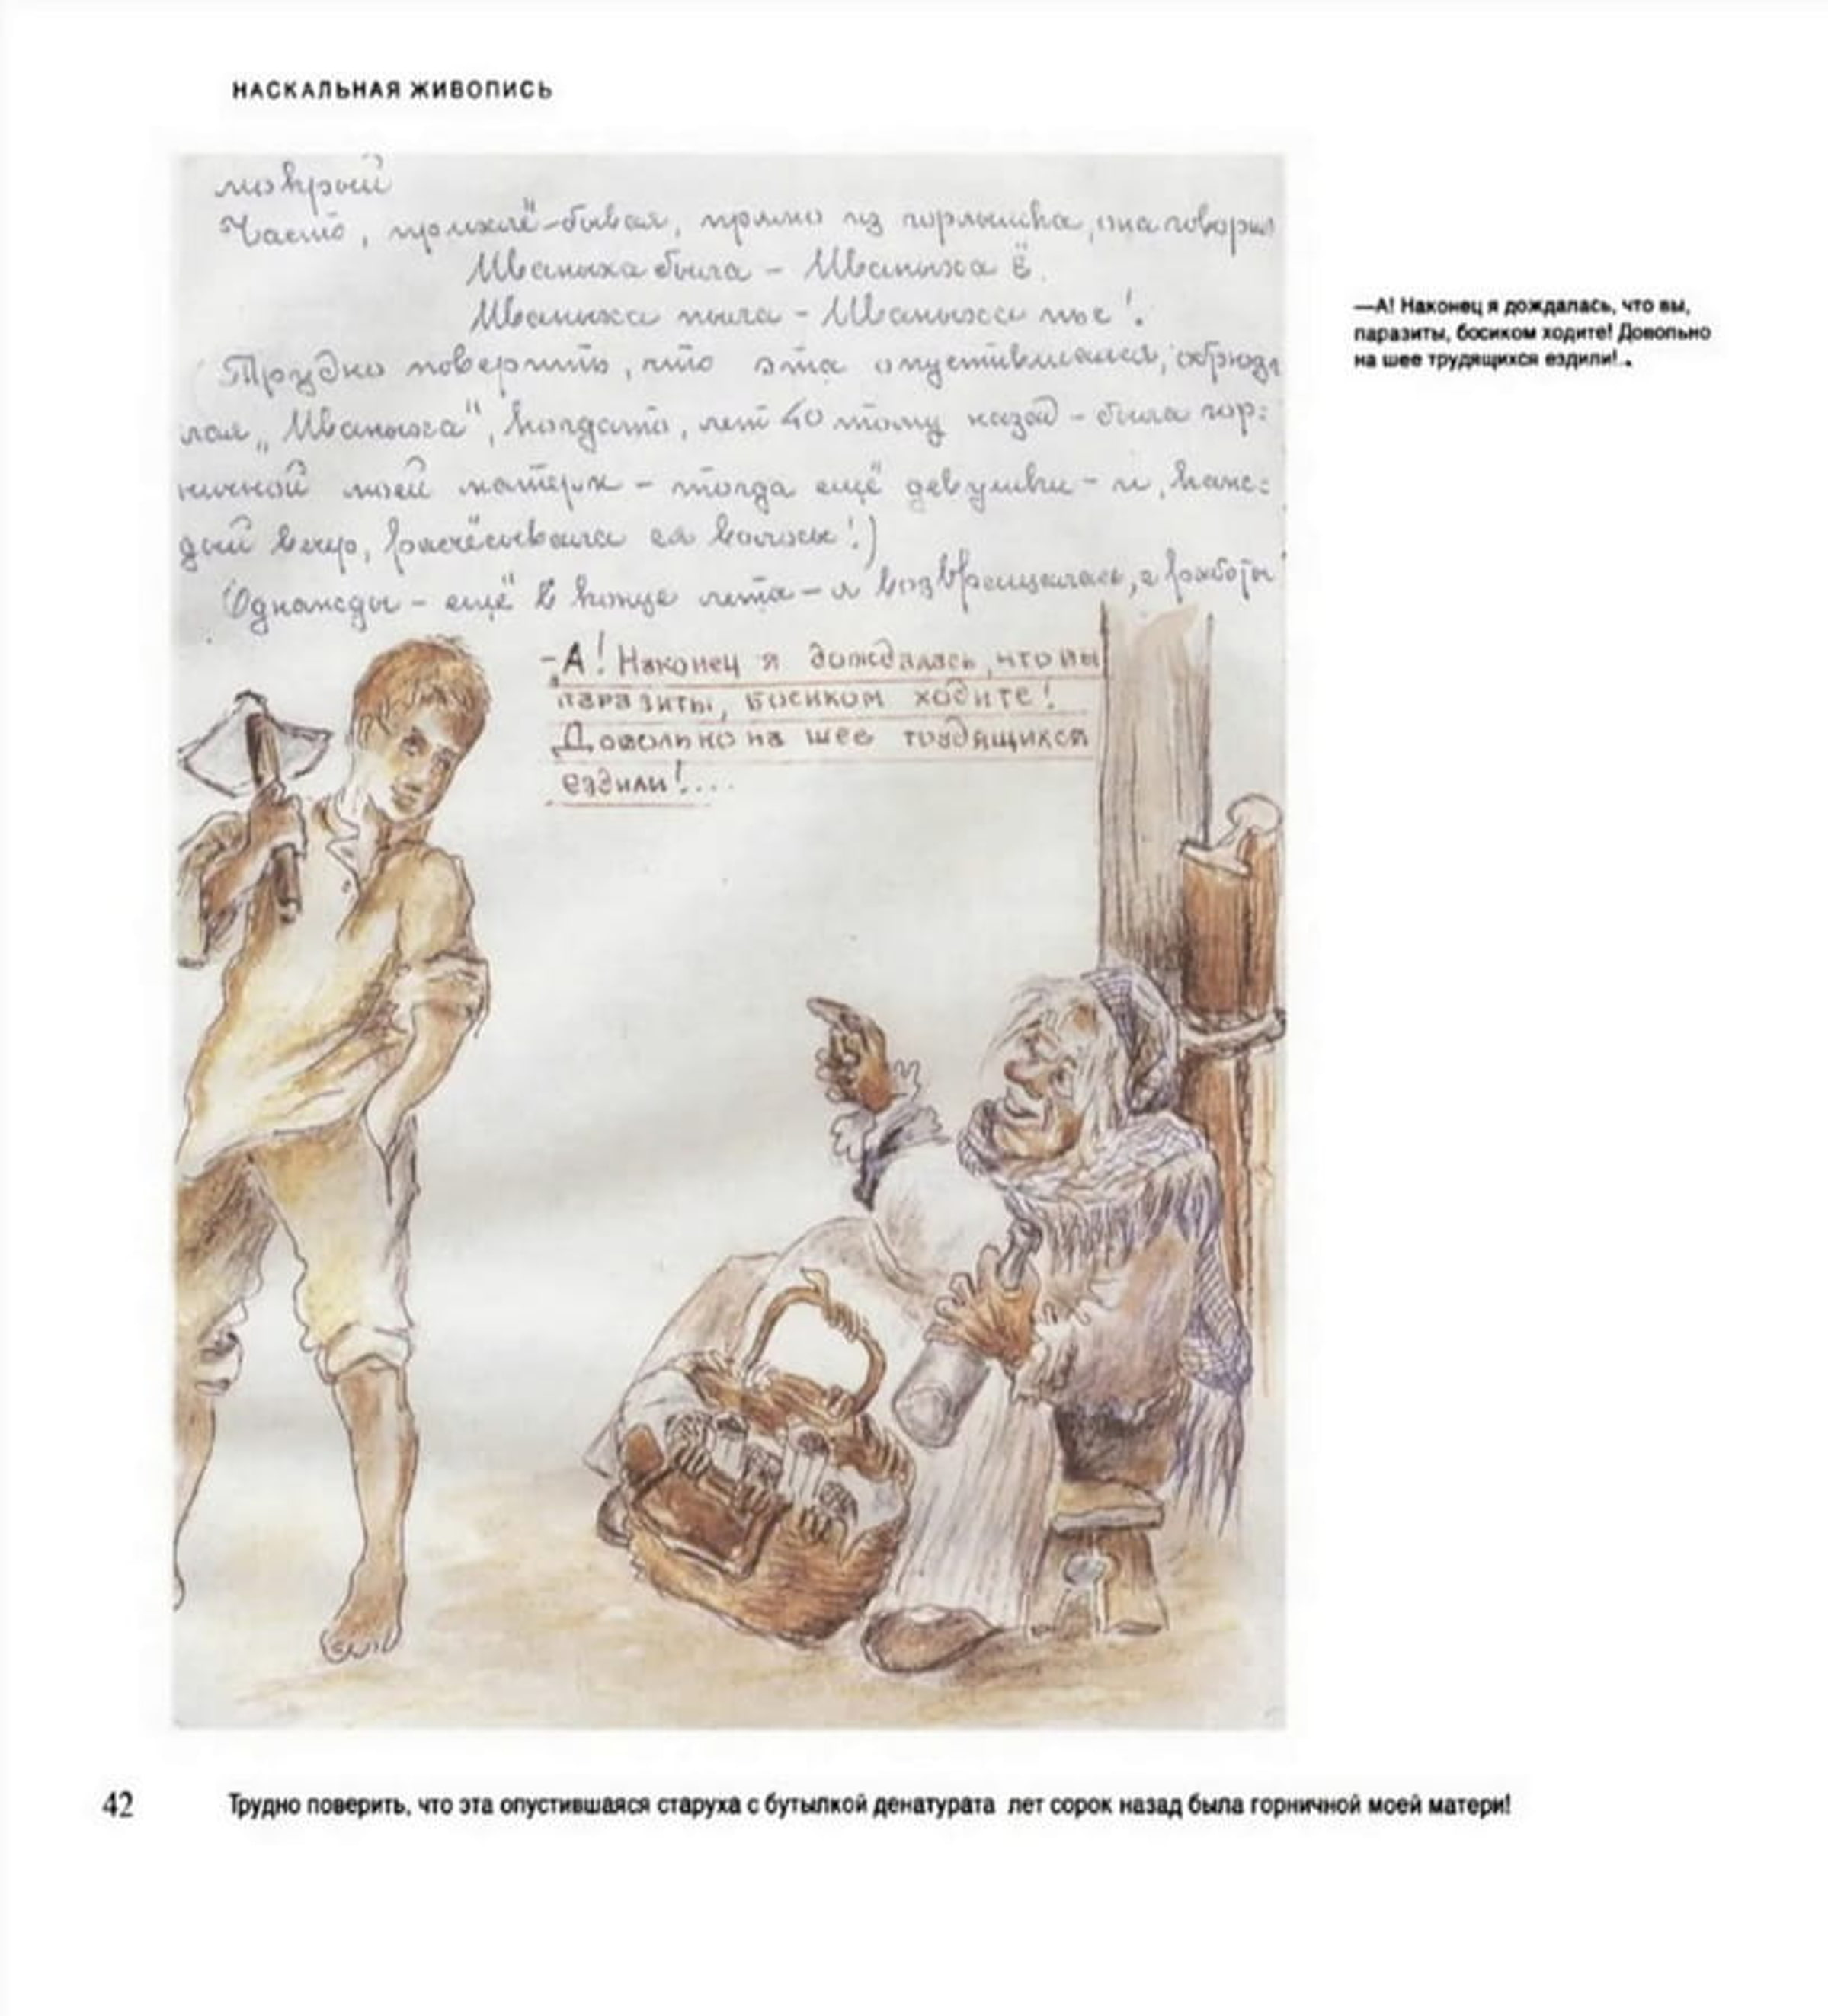 НАСКАЛЬНАЯ ЖИВОПИСЬ
мокрый
Часто, прямо из горлышка, она говорит
Иваныха была – Иваныха ё.
Иваныха пыла – Иваныха пье!
(Трудно поверить, что эта опустившаяся, обрюзг
лая „Иваныха", когда-то, лет 40 тому назад – была гор=
ничной моей матери – тогда ещё девушки – и, каж=
дый вечер, расчёсывала ея волосы!)
Однажды – ещё в конце лета – я возвращалась, с работы
–А! Наконец я дождалась, что вы
паразиты, босиком ходите!
Довольно на шее трудящихся
ездили!...
—А! Наконец я дождалась, что вы,
паразиты, босиком ходите! Довольно
на шее трудящихся ездили!..
42 Трудно поверить, что эта опустившаяся старуха с бутылкой денатурата лет сорок назад была горничной моей матери!